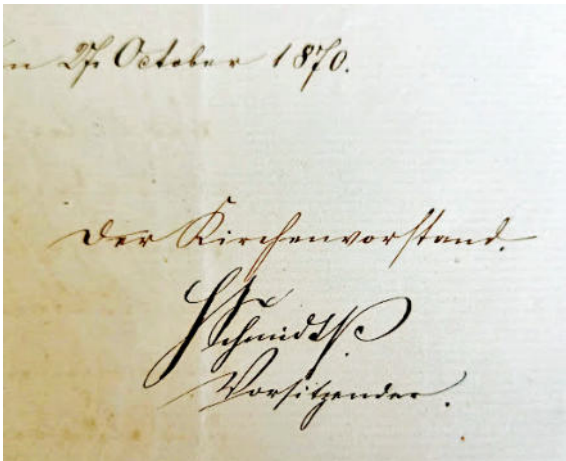 n 27. October 1870.
Der Kirchenvorstand.
Schmidt
Vorsitzender.